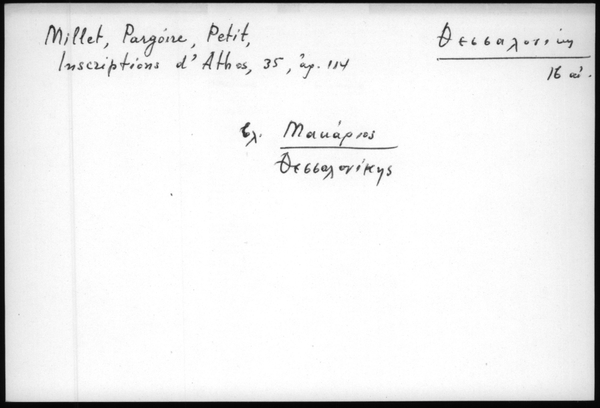 Millet, Pargoire, Petit,
Inscriptions d'Athos, 35, ἀρ. 114
Θεσσαλονίκη
16 αἰ.
βλ. Μακάριος
Θεσσαλονίκης